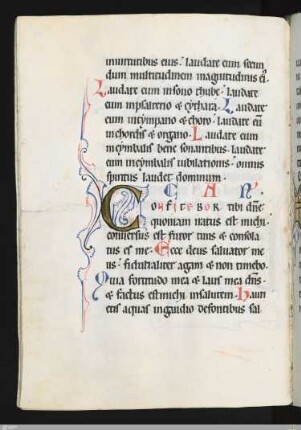 inuirtutibus eius. laudate eum secun
dum multitudinem magnitudinis ei.
Laudate eum insono thube. laudate
eum inpsalterio & cythara. Laudate
eum intympano & choro. laudate eū
inchordis & organo. Laudate eum
incymbalis bene sonantibus. laudate
eum incymbalis iubilationis. omnis
spiritus laudet dominum.
CAN̄
CONFITEBOR tibi dn̄e
quoniam iratus est michi.
conuersus est furor tuus & consola
tus es me. Ecce deus saluator me
us. fiducialiter agam & non timebo.
Quia fortitudo mea & laus mea dn̄s.
& factus est michi insalutem. Hauri
etis aquas ingaudio defontibus sal